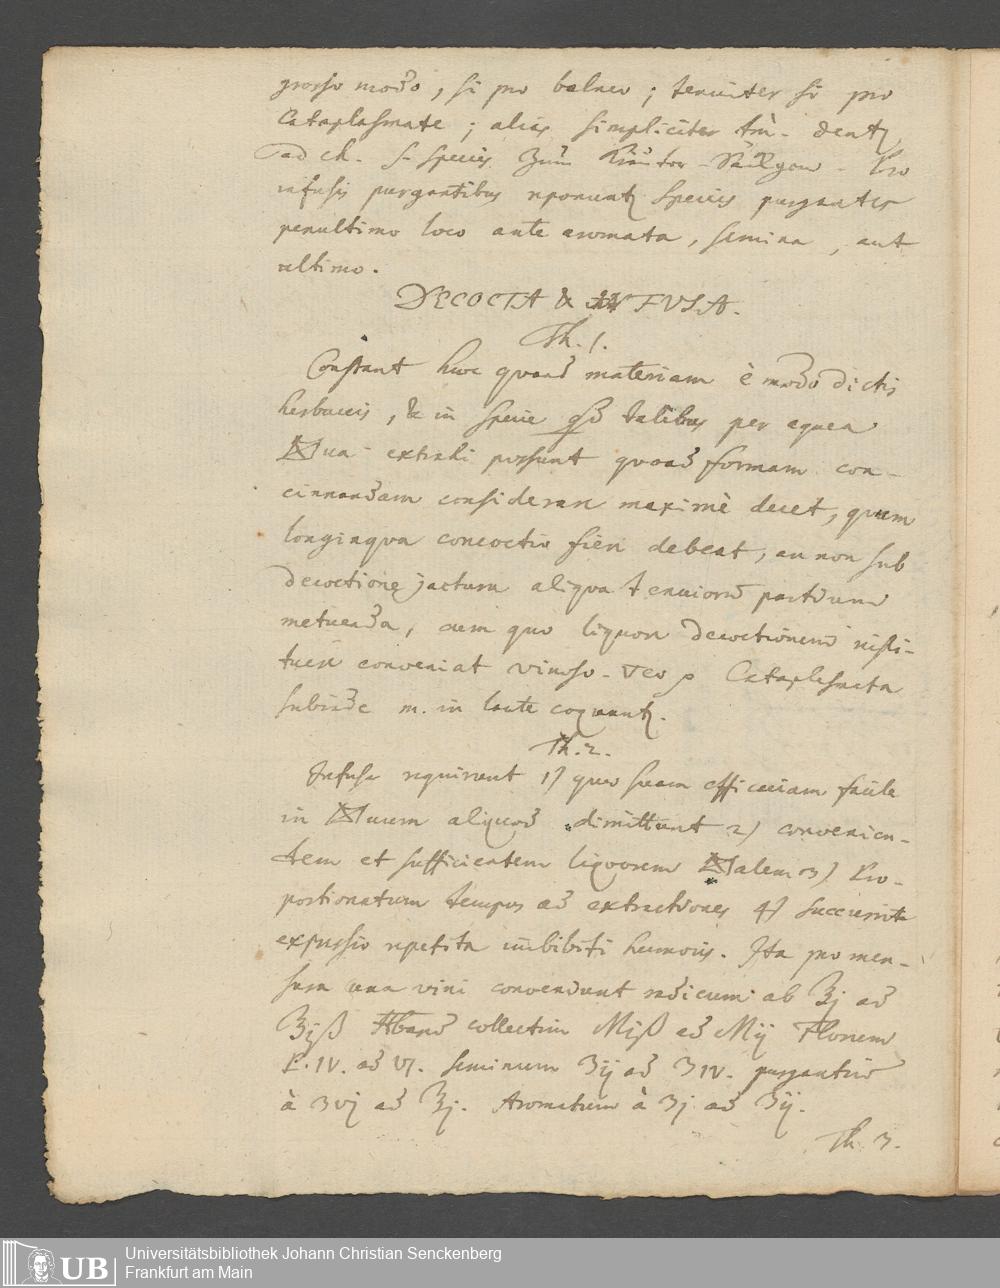 grosso modo, si pro balneo; tenuiter si pro
Cataplasmate; alias simpliciter tm. dentq
ad ch. S. Species Zum Kräuter-
infusis purgantibus reponuntq species purgantes
penultimo loco ante aromata, semina, aut
ultimo.
DECOCTA & INFUSA.
Th. 1.
Constant haec quoad materiam è modo dictis
herbaceis, & in specie talibus per aquea
extrahi possunt quoad formam con-
cinnandam considerari maximè decet, quam
longinqua concoctio fieri debeat, an non sub
decoctione jactura aliqua tenuiorum partium
metuenda, cum quo liquore decoctionem insti-
tuere conveniat vinoso - Cataplasmata
subinde in lacte coquantq.
Th. 2.
Infusa requirunt 1) quae suam efficaciam facile
in aliquod dimittunt 2) convenien-
tem et sufficientem liquorem 3) Pro-
portionatum tempus ad extractiones 4) succussiva
expressio repetita imbibiti humoris. Ita pro men-
sura una vini conveniunt radicum ab ℥j ad
℥jß Hbarum collectim Mjß ad Mij Florum
P. IV. ad VI. seminum ʒij ad ʒIV. purgantium
à ʒvj ad ℥j. Aromatum à ʒj ad ʒij.
Th. 3.
UB
Universitätsbibliothek Johann Christian Senckenberg
Frankfurt am Main